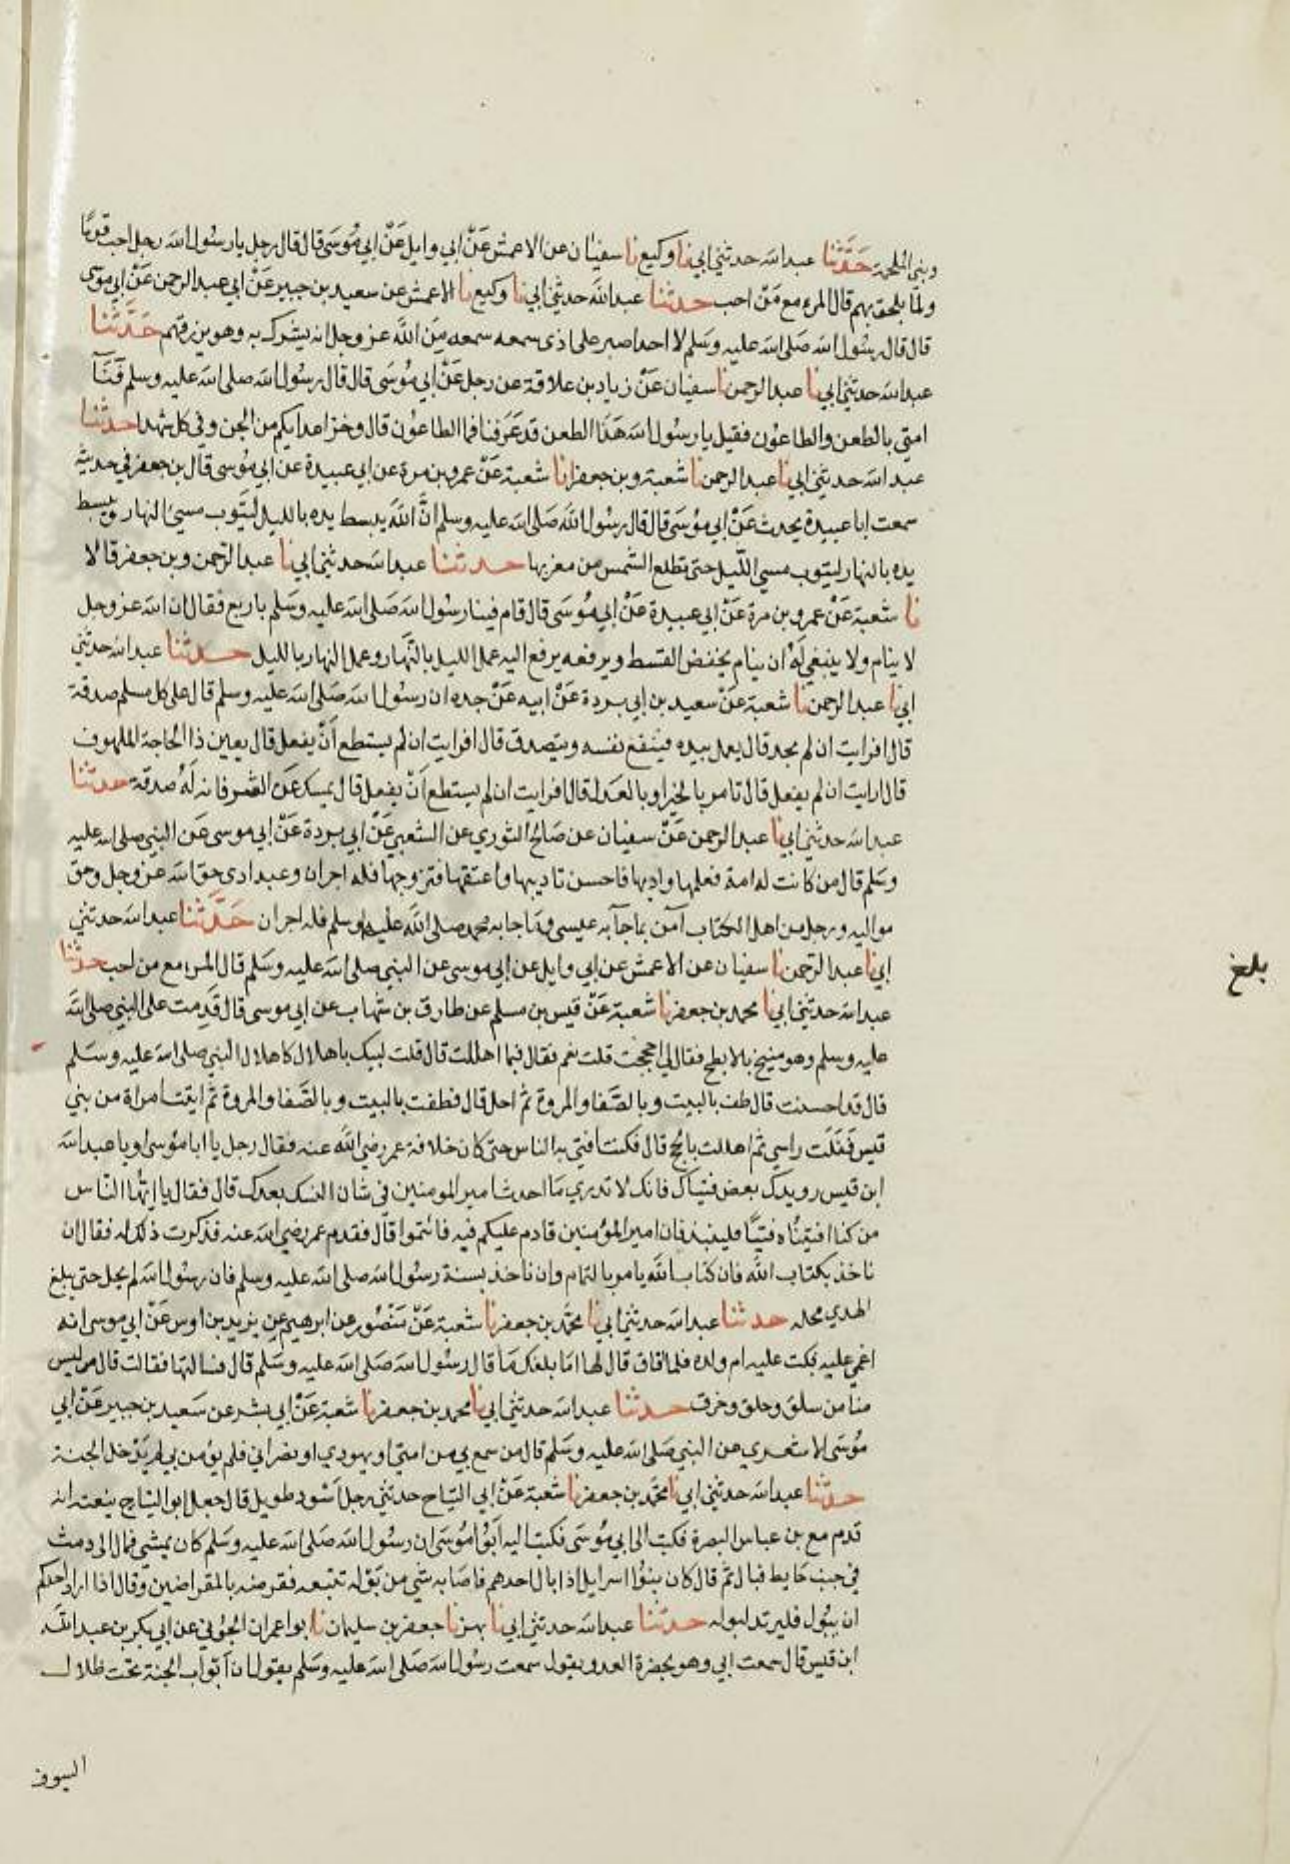 ونبي الملحمة حَدَّثنا عبد الله حدثني ابي نا وكيع نا سفيان عن الاعمش عَنْ ابي وايل عَنْ ابي مُوسَى قال قال رجل يا رسُول الله رجل احب قومًا
ولمَّا يلحق بهم قال المرء مع مَنْ احب حدثنا عبد الله حدثني ابي نا وكيع نا الاعمش عن سعيد بن جبير عَنْ ابي عبد الرحمن عَنْ ابي موسى
قال قال رسُول الله صَلى الله عليه وسَلم لا احد اصبر على اذى سمعه سمعه مِنَ الله عز وجل انه يشرك به وهو يرزقهم حَدَّثنا
عبد الله حدثني ابي نا عبد الرحمن نا سفيان عَنْ زياد بن علاقة عن رجل عَنْ ابي مُوسَى قال قال رسُول الله صلى الله عليه وسلم فَنَآ
امتي بالطعن والطاعُون فقيل يا رسُول الله هَذَا الطعن قد عَرَفنا فما الطاعُون قال وخز اعدايكم من الجن وفي كل شهدا حدثنا
عبد الله حدثني ابي نا عبد الرحمن نا شعبة وبن جعفر انا شعبة عَنْ عمرو بن مرة عن ابي عبيدة عن ابي مُوسى قال بن جعفر في حديثه
سمعت ابا عبيدة يحدث عَنْ ابي مُوسَى قال قال رسُول الله صَلى الله عليه وسلم انَّ الله يبسط يده بالليل ليتُوب مسيئ النهار ويبسط
يده بالنهار ليتوب مسي اللّيل حتى تطلع الشمس من مغربها حدثنا عبد الله حدثني ابي نا عبد الرّحمن وبن جعفر قالا
نا شعبة عَنْ عمرو بن مرة عَنْ ابي عبيدة عَنْ ابي مُوسَى قال قام فينا رسُول الله صَلى الله عليه وسَلم باربع فقال ان الله عز وجل
لا ينام ولا ينبغي لَهُ ان ينام يخفض القسط ويرفعه يرفع اليه عمل الليل بالنّهار وعمل النهار بالليل حدثنا عبد الله حدثني
ابي نا عبد الرحمن نا شعبة عَنْ سعيد بن ابي بردة عَنْ ابيه عَنْ جده ان رسُول الله صَلى الله عليه وسلم قال على كل مسلم صدقة
قال افرايت ان لم يجد قال يعمل بيده فينفع نفسه ويتصدق قال افرايت ان لم يستطع أنْ يفعل قال يعين ذا الحاجة الملهوف
قال ارايت ان لم يفعل قال تامر بالخير او بالعدل قال افرايت ان لم يستطع أنْ يفعل قال يمسك عَن الشر فانه لَهُ صدقة حدثنا
عبد الله حدثني ابي نا عبد الرحمن عَنْ سفيان عن صَالح الثوري عن الشعبي عَنْ ابي بردة عَنْ ابي موسى عَن النبي صلى الله عليه
وسَلم قال من كانت له امة فعلمها وادبها فاحسن تاديبها واعتقها فتزوجها فله اجران وعبد ادى حق الله عز وجل وحق
مواليه ورجل من اهل الكتاب آمن بما جآ به عيسى وما جا به محمد صلى الله عليه وسلم فله اجران حَدَّثنا عبد الله حدثني
ابي نا عبد الرّحمن نا سفيان عن الاعمش عن ابي وايل عن ابي موسى عن النبي صلى الله عليه وسَلم قال المرء مع من احب حدثنا
عبد الله حدثني ابي نا محمد بن جعفر نا شعبة عَنْ قيس بن مسلم عن طارق بن شهاب عن ابي موسى قال قَدِمت على النبي صلى الله
عليه وسلم وهو منيخ بالابطح فقال لي احججت قلت نعم فقال فبما اهللت قال قلت لبيك باهلال كاهلال النبي صلى الله عليه وسَلم
قال قد احسنت قال طف بالبيت وبالصّفا والمروة ثمّ احل قال فطفت بالبيت وبالصّفا والمروة ثم اتيت امراة من بني
قيس فَفَلَت راسي ثم اهللت بالحج قال فكنت افتي به الناس حتى كان خلافة عمر رضي الله عنه فقال رجل يا ابا مُوسى او يا عبد الله
ابن قيس رويدك بعض فتياك فانك لا تدري مَا احدث امير المومنين في شان النسك بعدك قال فقال يا ايّها النّاس
من كنا افتيناه فتيًا فليتئد فان امير المؤمنين قادم عليكم فيه فائتموا قال فقدم عمر رضي الله عنه فذكرت ذلك له فقال ان
ناخذ بكتاب الله فان كتاب الله يامر بالتمام وان ناخذ بسنة رسُول الله صلى الله عليه وسلم فان رسُول الله لم يحل حتى بلغ
الهدي محله حدثنا عبد الله حدثني ابي نا محمَّد بن جعفر نا شعبة عَنْ مَنْصُور عن ابرهيم عن يزيد بن اوس عَنْ ابي موسى انه
اغمي عليه فبكت عليه ام ولده فلما فاق قال لها امَا بلغك مَا قال رسُول الله صَلى الله عليه وسَلم قال فسالتها فقالت قال من ليس
منا من سلق وحلق وخرق حدثنا عبد الله حدثني ابي نا محمد بن جعفر نا شعبة عَنْ ابي بشر عن سَعيد بن جبير عَنْ ابي
مُوسَى الاشعري عن النبي صَلى الله عليه وسَلم قال من سمع بي من امتي او يهودي او نصراني فلم يؤمن بي لم يَدْخل الجنة
حدثنا عبد الله حدثني ابي نا محمَّد بن جعفر نا شعبة عَنْ ابي التيّاح حدثني رجل اَسْود طويل قال جعل ابو التيّاح ينعته انه
قدم مع بن عباس البصرة فكتب الى ابي مُوسَى فكتب اليه اَبُوا مُوسَى ان رسُول الله صَلى الله عليه وسَلم كان يمشي فمال الى دمث
في جنب حَايط فبال ثمّ قال كان بنُوا اسرايل اذا بال احدهم فاصَابه شي من بَوْله تتبعه فقرضه بالمقراضين وقال اذا اراد احدكم
ان يبُول فليرتد لبوله حدثنا عبد الله حدثني ابي نا بهز نا جعفر بن سليمان نا ابوا عمران الجُوني عن ابي بكر بن عبد الله
ابن قيس قال سمعت ابي وهو بحضرة العدو يقول سمعت رسُول الله صَلى الله عليه وسَلم يقول ان اَبْواب الجنة تحت ظلال
السيوف
بلغ